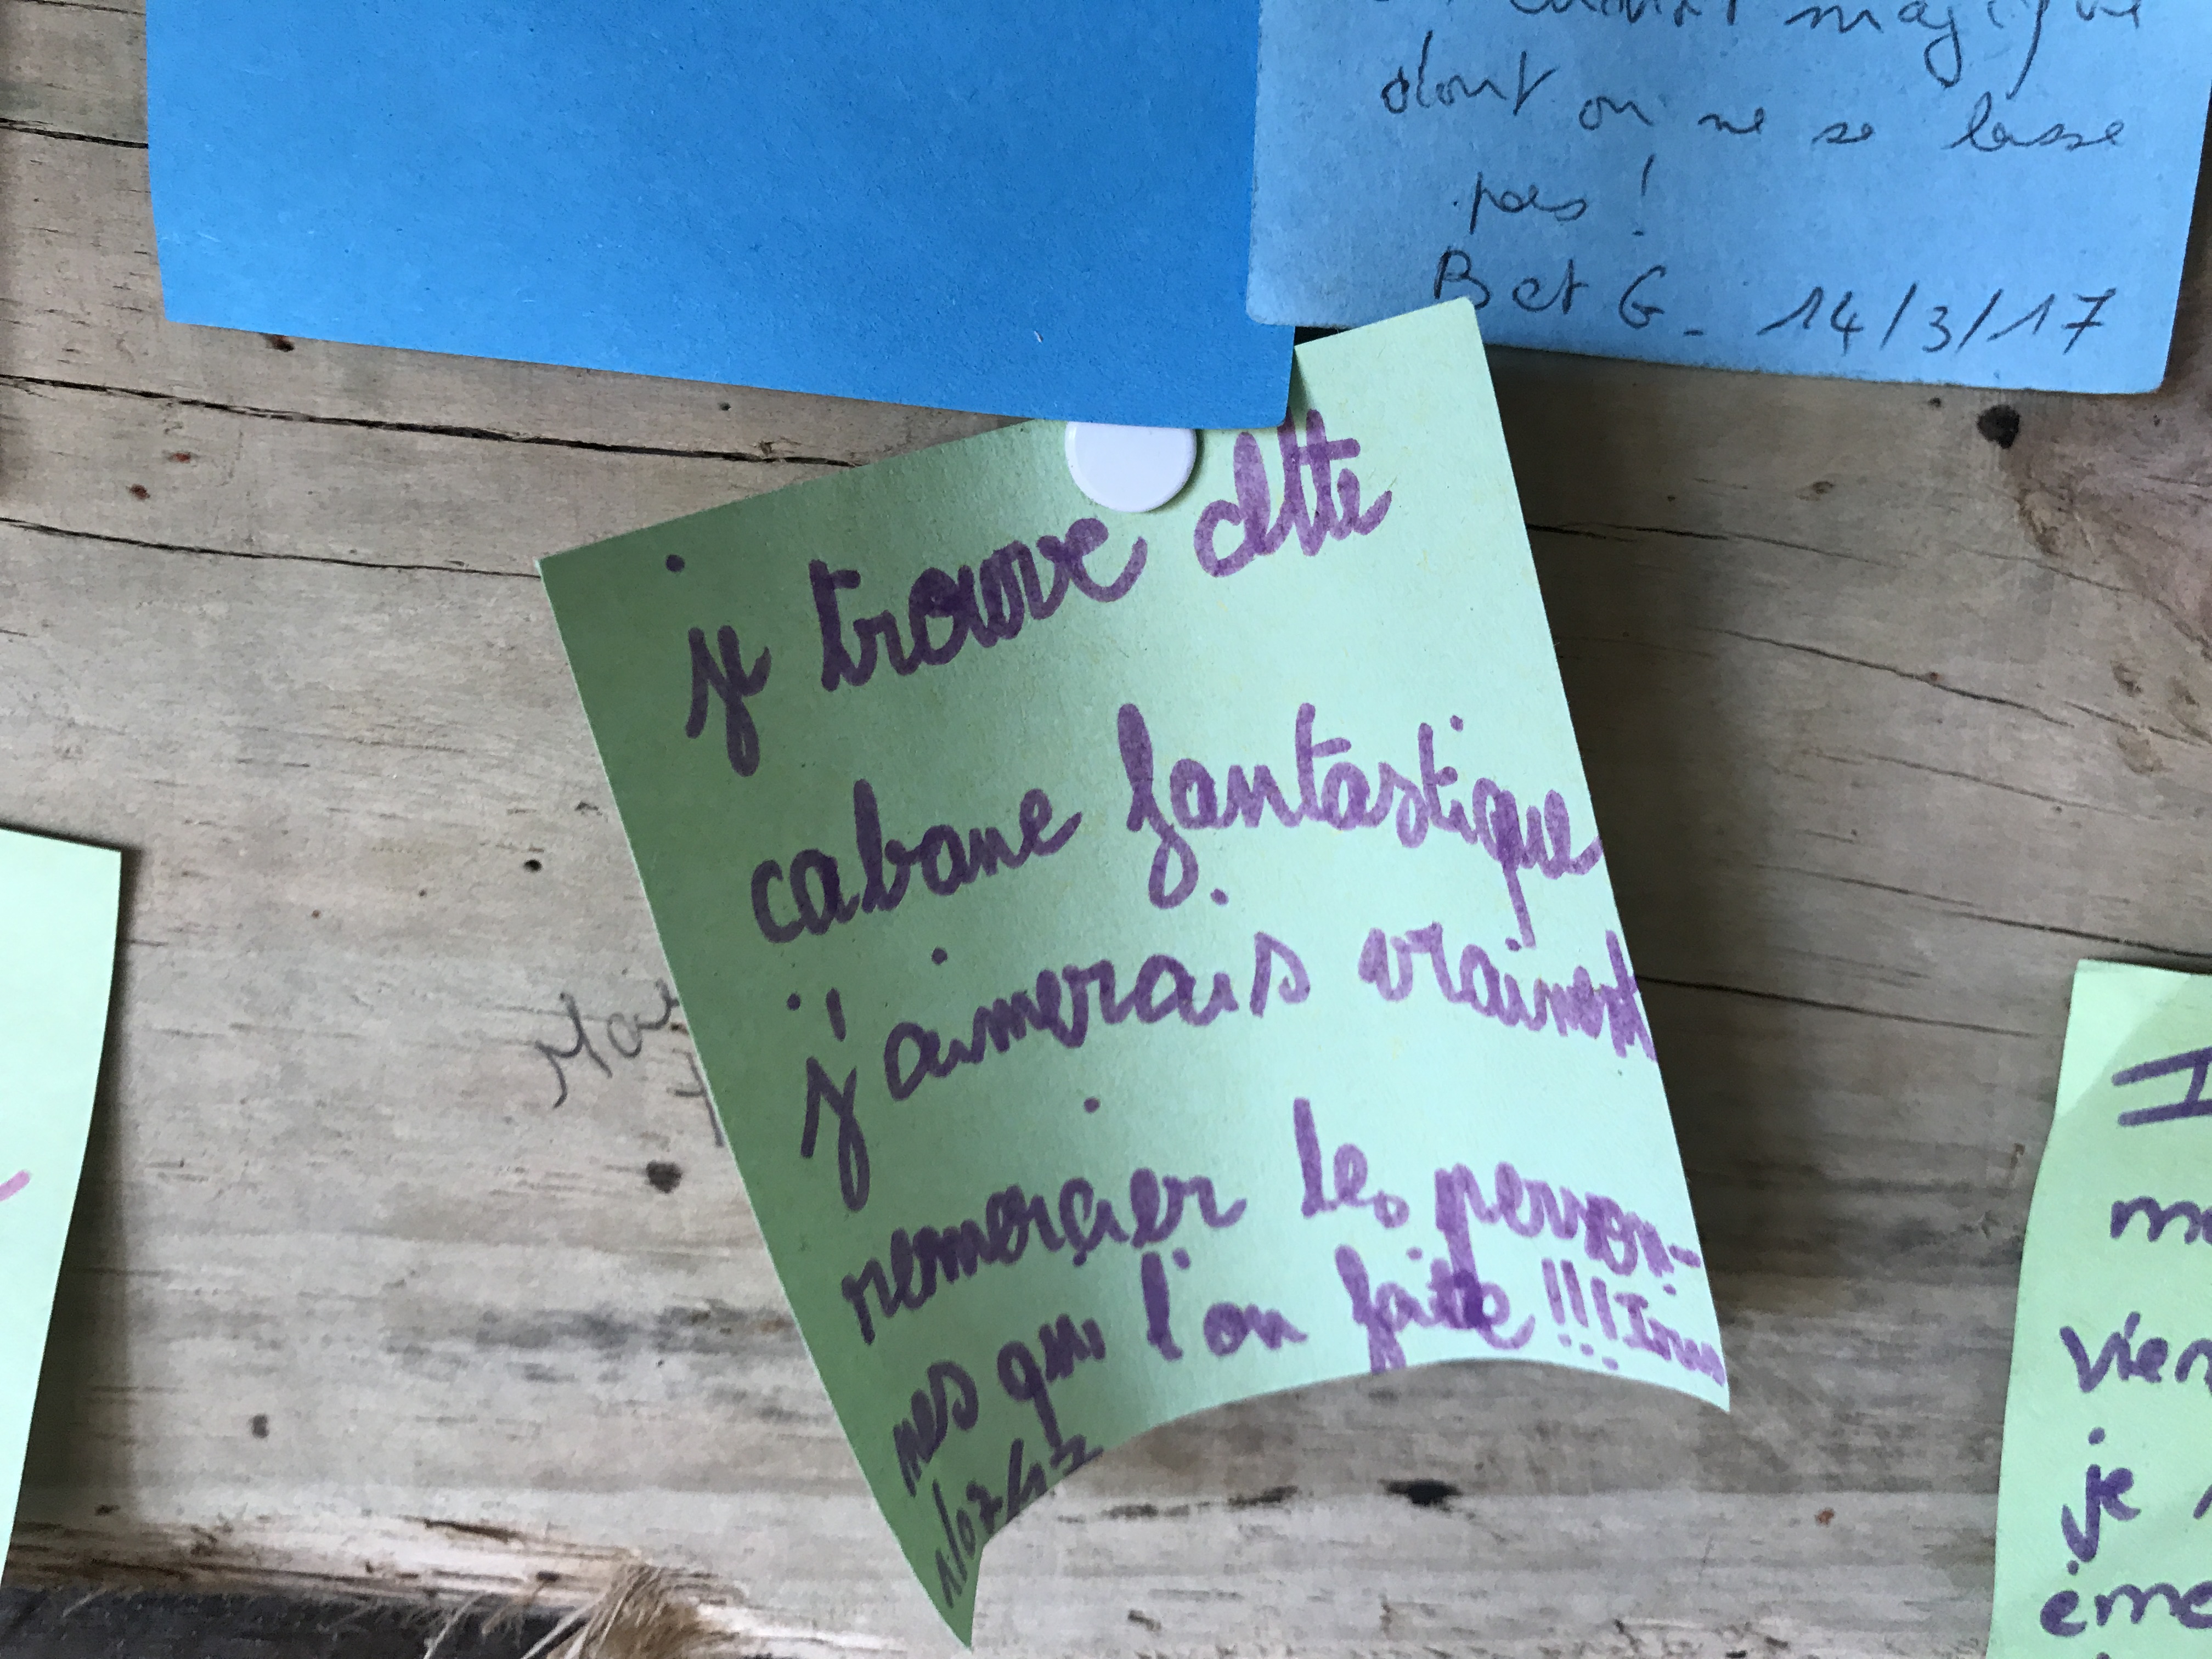 magique
dont on ne se lasse
pas !
B et G - 14/3/17
je trouve cette
cabane fantastique
j'aimerais vraiment
remerçier les person-
nes qui l'on faite !!!
1/07/17
je